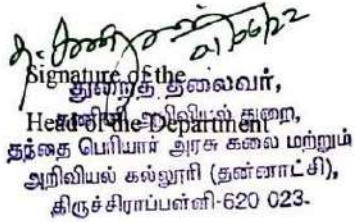 01/06/22
Signature of the
துறைத் தலைவர்,
கணினி அறிவியல் துறை,
Head of the Department
தந்தை பெரியார் அரசு கலை மற்றும்
அறிவியல் கல்லூரி (தன்னாட்சி),
திருச்சிராப்பள்ளி-620 023.